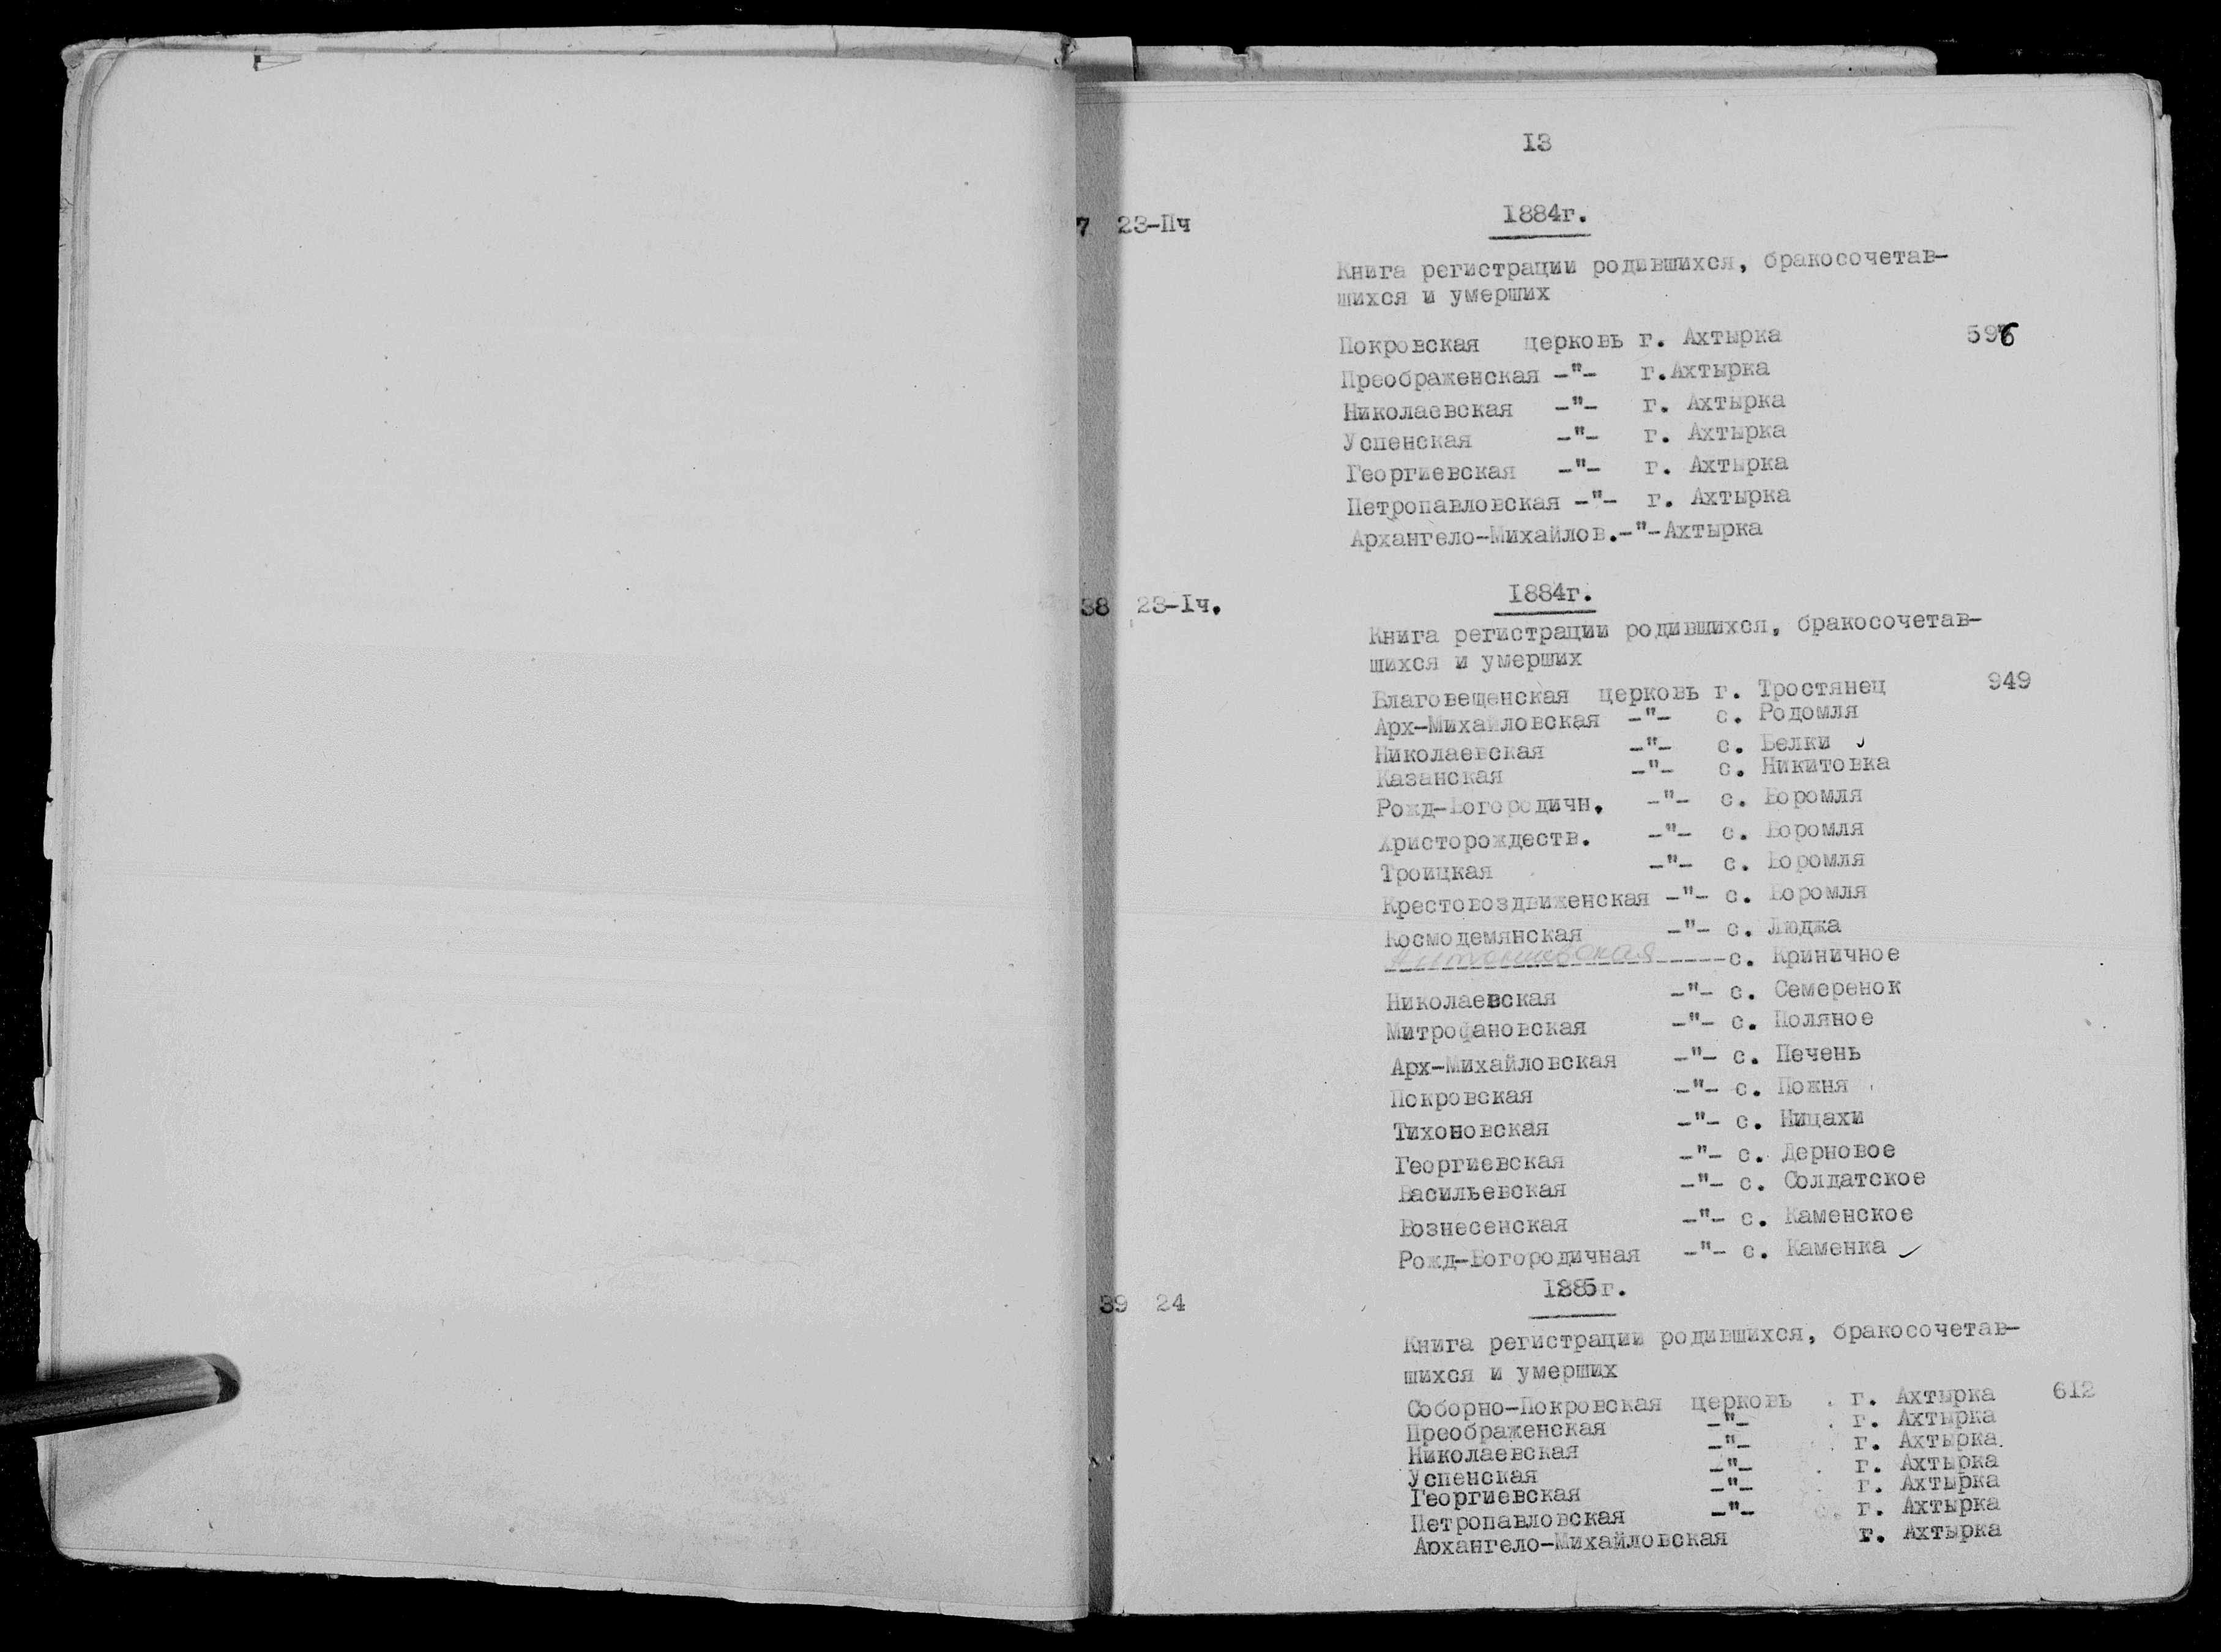 13
7 23-IIч 1884г.
Книга регистрации родившихся, бракосочетав-
шихся и умерших
Покровская церковь г. Ахтырка 596
Преображенская -"- г.Ахтырка
Николаевская -"- г. Ахтырка
Успенская -"- г. Ахтырка
Георгиевская -"- г. Ахтырка
Петропавловская -"- г. Ахтырка
Архангело-Михайлов.-"-Ахтырка
38 23-Iч. 1884г.
Книга регистрации родившихся, бракосочетав-
шихся и умерших
Благовещенская церковь г. Тростянец 949
Арх-Михайловская -"- с. Родомля
Николаевская -"- с. Белки
Казанская -"- с. Никитовка
Рожд-Богородичн. -"- с. Боромля
Христорождеств. -"- с. Боромля
Троицкая -"- с. Боромля
Крестовоздвиженская -"- с. Боромля
Космодемянская -"- с. Люджа
Антониевская -----с. Криничное
Николаевская -"- с. Семеренок
Митрофановская -"- с. Поляное
Арх-Михайловская -"- с. Печень
Покровская -"- с. Пожня
Тихоновская -"- с. Ницахи
Георгиевская -"- с. Дерновое
Васильевская -"- с. Солдатское
Вознесенская -"- с. Каменское
Рожд-Богородичная -"- с. Каменка
39 24 1885г.
Книга регистрации родившихся, бракосочетав-
шихся и умерших
Соборно-Покровская церковь г. Ахтырка 612
Преображенская -"- г. Ахтырка
Николаевская -"- г. Ахтырка
Успенская -"- г. Ахтырка
Георгиевская -"- г. Ахтырка
Петропавловская -"- г. Ахтырка
Архангело-Михайловская г. Ахтырка